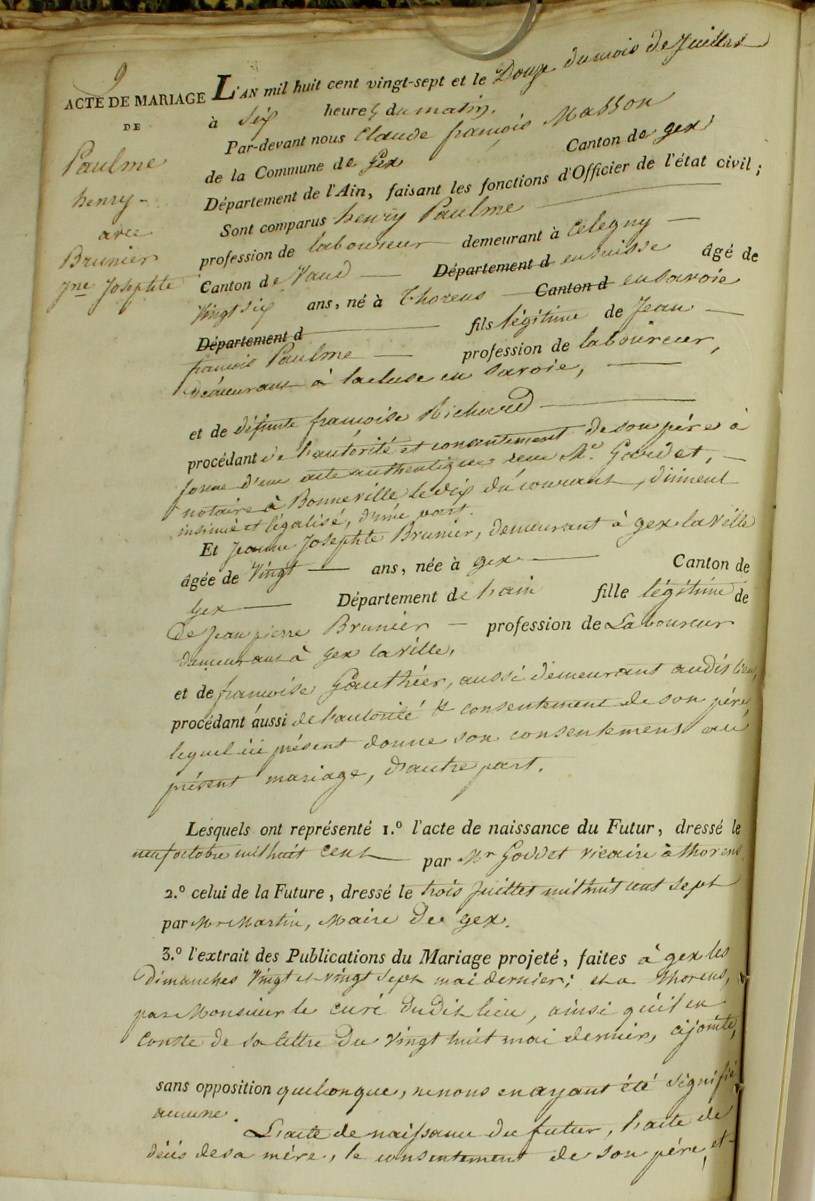 9
ACTE DE MARIAGE
DE
Paulme
henry -
avec
Brunier
Jne Josephte
L'AN mil huit cent vingt-sept et le Douze du mois de Juillet
à Six heures du matin.
Par-devant nous Claude françois Masson
de la Commune de Gex Canton de gex
Département de l'Ain, faisant les fonctions d'Officier de l'état civil;
Sont comparus henry Paulme
profession de laboureur demeurant à Celegny
Canton de Vaud Département d en suisse âgé de
Vingt six ans, né à Thorens Canton d en savoie
Département d fils légitime de Jean
françois Paulme profession de laboureur,
demeurant à en savoie,
et de défunte françoise Richard
procédant de l'autorité et consentement de son père à
forme d'un acte authentique reçu Me.
notaire à Bonneville le dix du courant, dument
insinué et légalisé, d'une part.
Et Jeanne Josephte Brunier, demeurant à gex la ville
âgée de Vingt ans, née à gex Canton de
Gex Département de l'ain fille légitime de
De Jean pierre Brunier profession de Laboureur
demeurant à gex la ville,
et de françoise Gauthier, aussi demeurant audit lieu,
procédant aussi de l'autorité & consentement de son père
lequel ici présent donne son consentement au
présent mariage, d'autre part.
Lesquels ont représenté 1.º l'acte de naissance du Futur, dressé le
neuf octobre mil huit cent par Mr Goddet vicaire à thorens
2.º celui de la Future, dressé le trois Juillet mil huit cent sept
par Mr Martin, Maire de gex.
3.º l'extrait des Publications du Mariage projeté, faites à gex les
Dimanches Vingt et vingt sept mai dernier; et a thorens,
par Monsieur le curé dudit lieu, ainsi qu'il en
Conste de sa lettre du vingt huit mai dernier, ajointe,
sans opposition quelconque, ne nous en ayant été signifié
aucune.
L'acte de naissance du futur, l'acte de
décès de sa mère, le consentement de son père, et